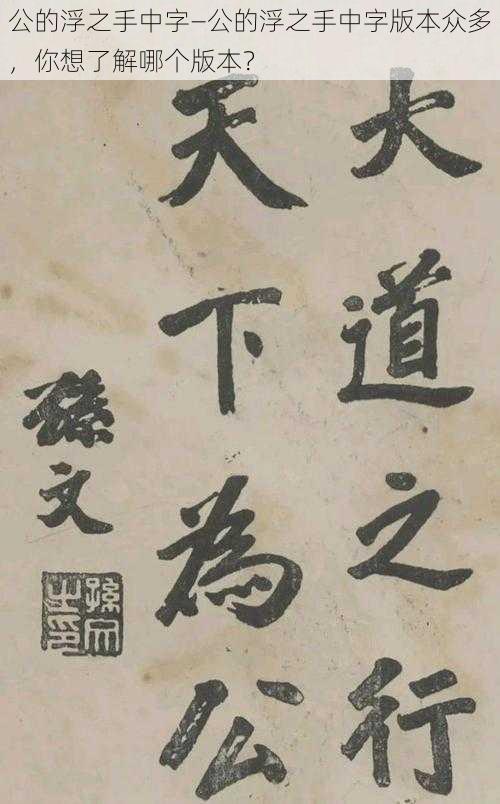 公的浮之手中字—公的浮之手中字版本众多
，你想了解哪个版本？
大道之行
天下為公
孫文
孫文之印